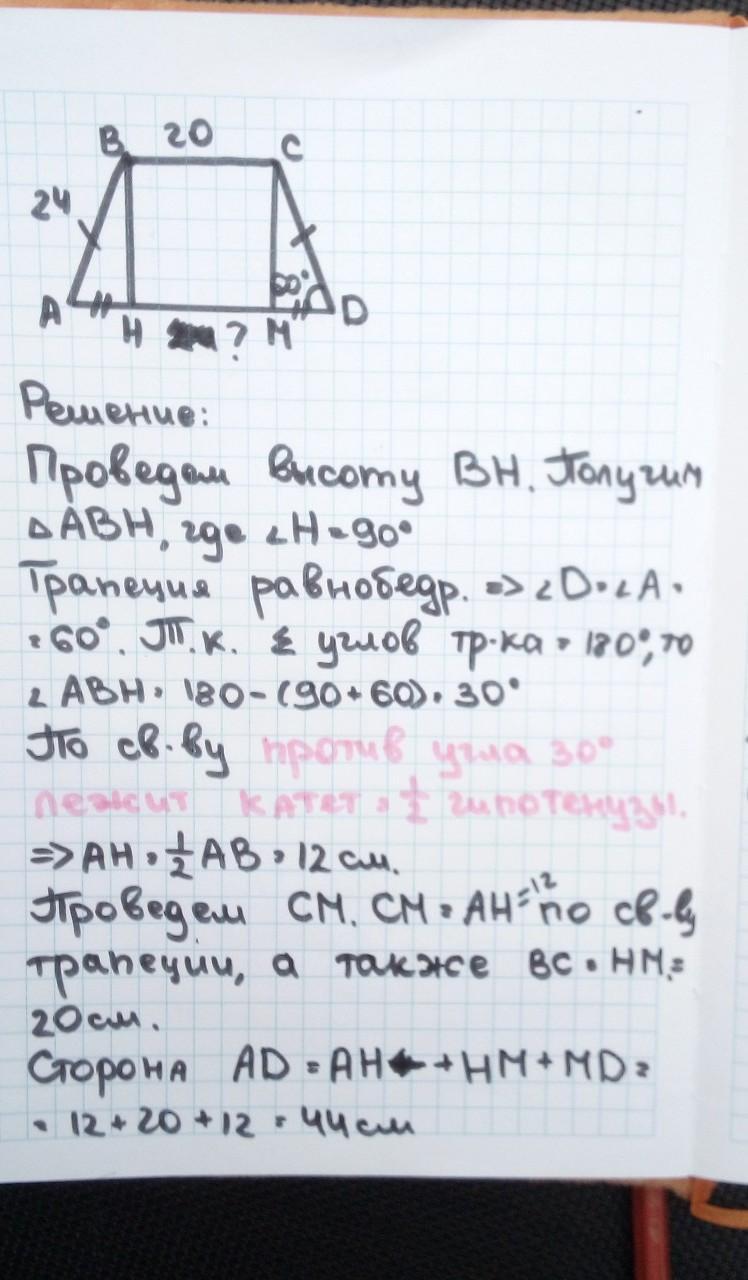 B 20 C
24
60°
A H ? M D
Решение:
Проведем высоту BH. Получим
△ABH, где ∠H = 90°
Трапеция равнобедр. => ∠D = ∠A =
= 60°. Т.к. Σ углов тр-ка = 180°, то
∠ABH = 180 - (90 + 60) = 30°
По св-ву против угла 30°
лежит катет = 1/2 гипотенузы.
=> AH = 1/2 AB = 12 см.
Проведем CM. CM = AH = 12 по св-ву
трапеции, а также BC = HM =
20 см.
Сторона AD = AH + HM + MD =
= 12 + 20 + 12 = 44 см